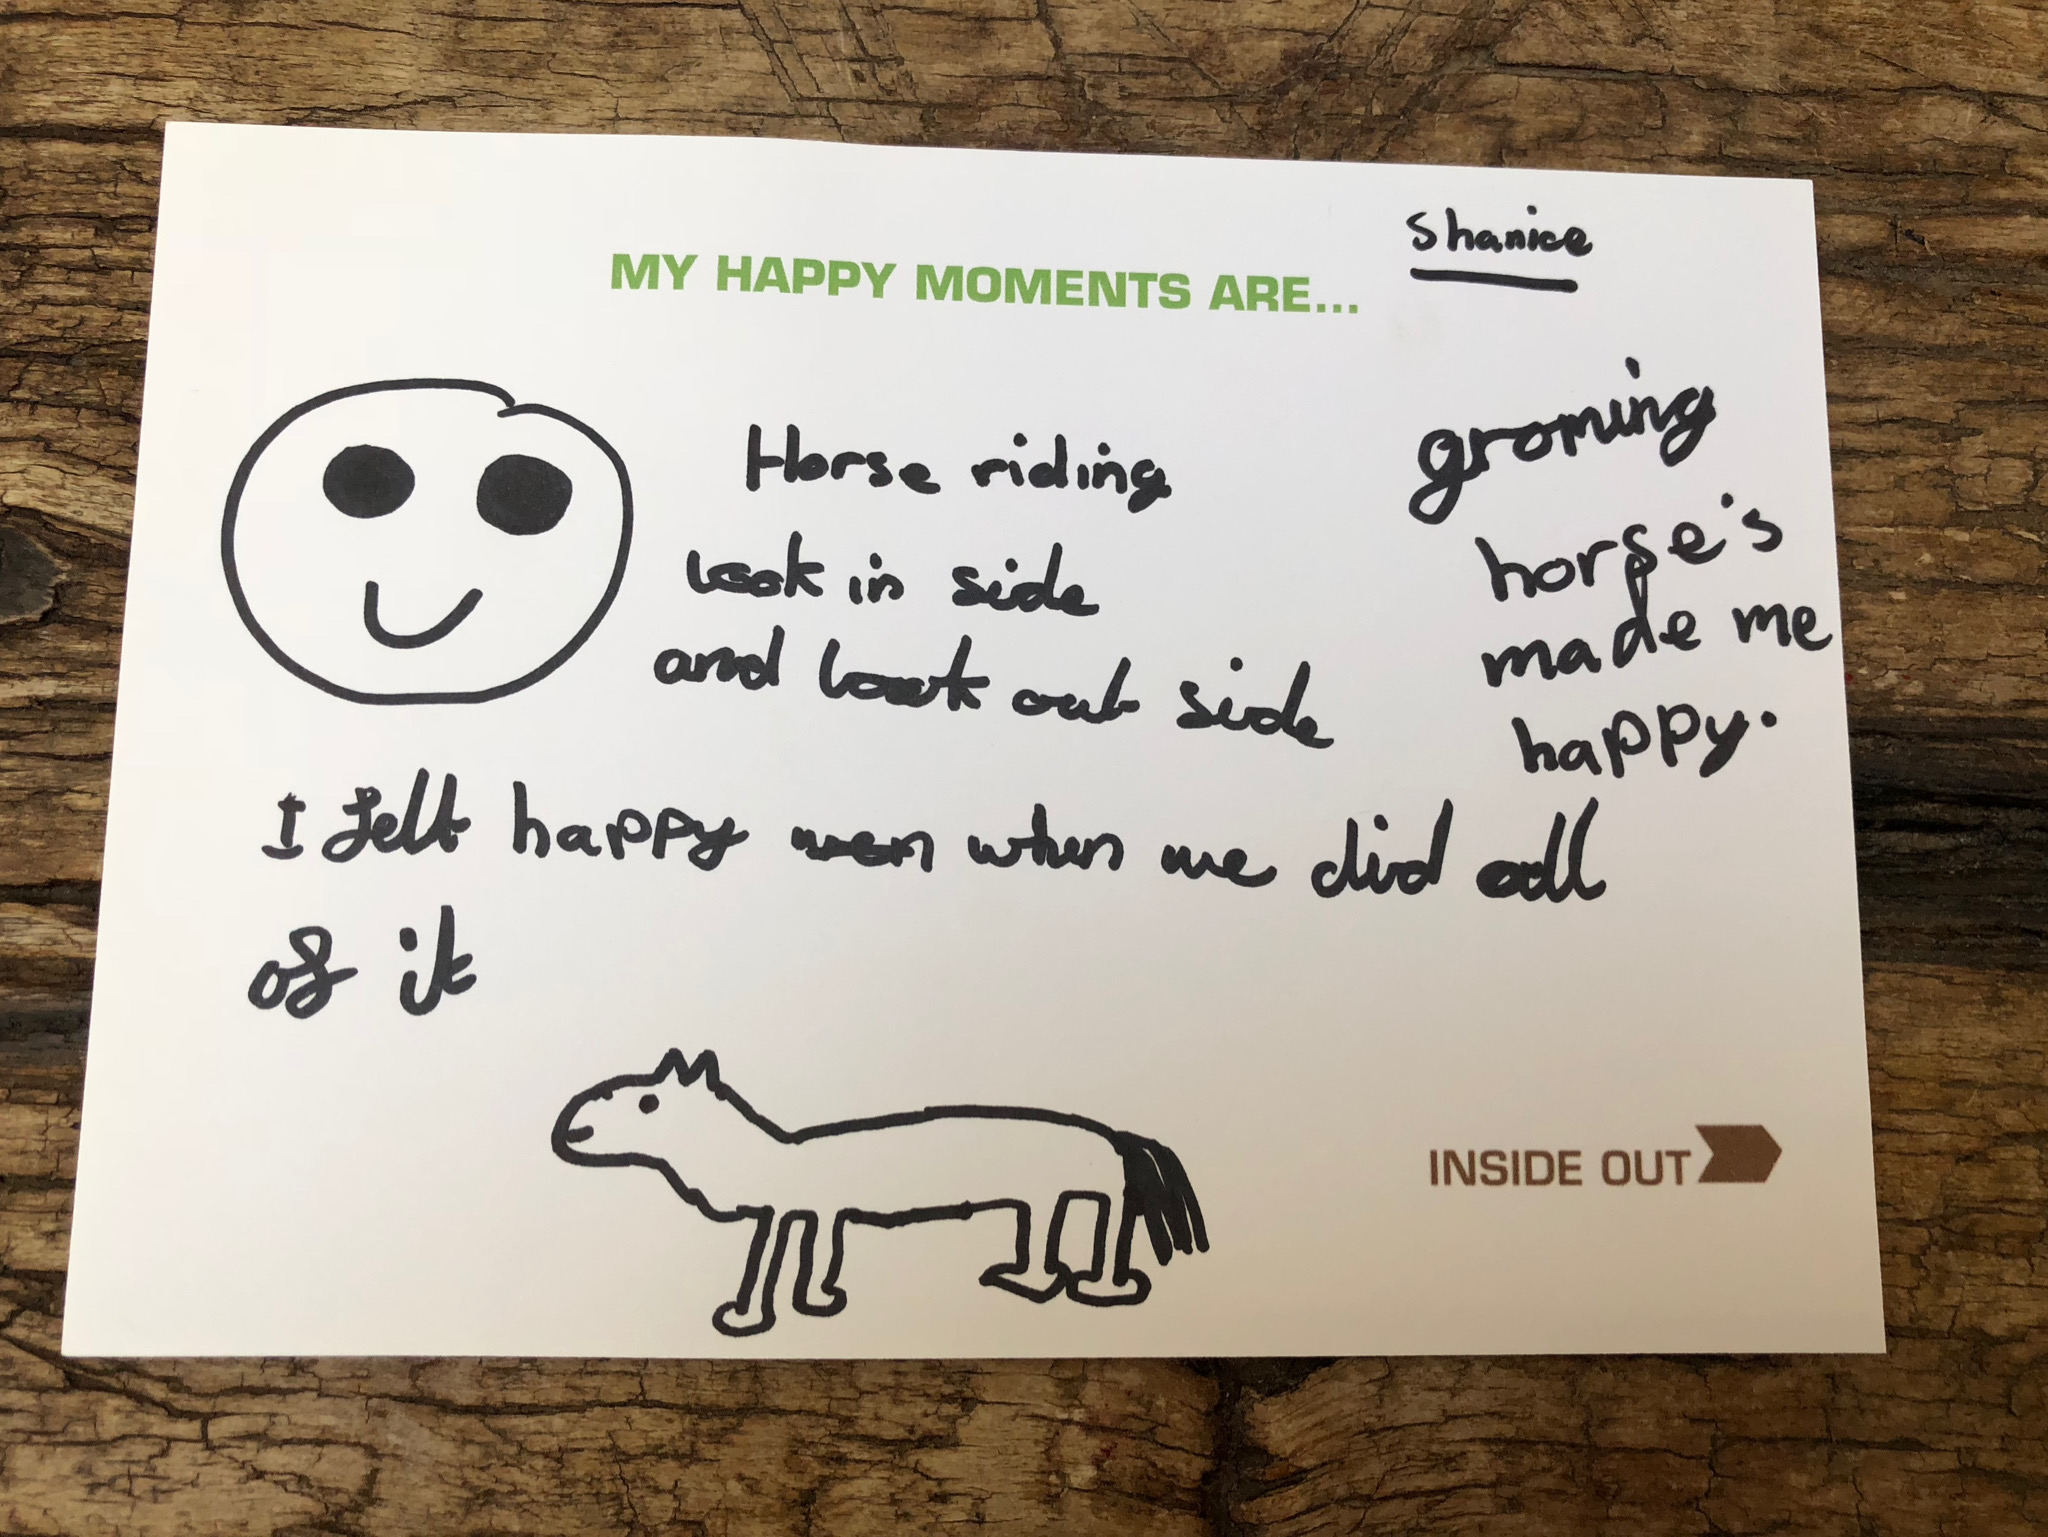 Shanice
MY HAPPY MOMENTS ARE...
Horse riding
look in side
and look out side
groming
horse's
made me
happy.
I felt happy wen when we did all
of it
INSIDE OUT